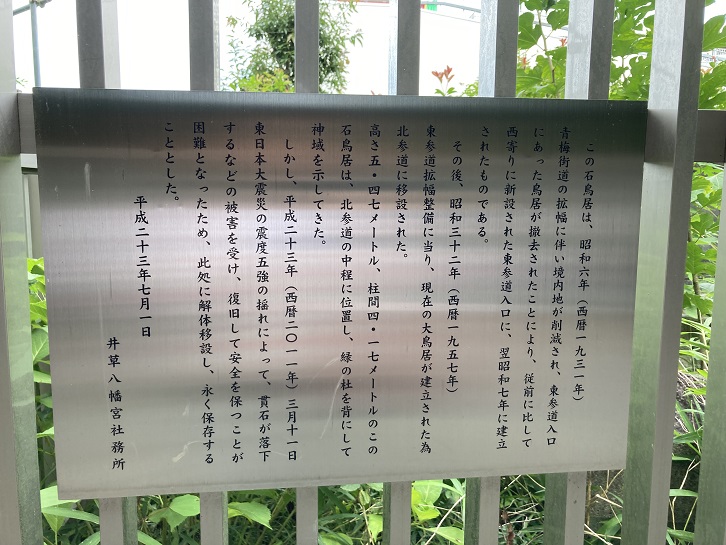 この石鳥居は、昭和六年（西暦一九三一年）
青梅街道の拡幅に伴い境内地が削減され、東参道入口
にあった鳥居が撤去されたことにより、従前に比して
西寄りに新設された東参道入口に、翌昭和七年に建立
されたものである。
その後、昭和三十二年（西暦一九五七年）
東参道拡幅整備に当り、現在の大鳥居が建立された為
北参道に移設された。
高さ五・四七メートル、柱間四・一七メートルのこの
石鳥居は、北参道の中程に位置し、緑の杜を背にして
神域を示してきた。
しかし、平成二十三年（西暦二〇一一年）三月十一日
東日本大震災の震度五強の揺れによって、貫石が落下
するなどの被害を受け、復旧して安全を保つことが
困難となったため、此処に解体移設し、永く保存する
こととした。
平成二十三年七月一日
井草八幡宮社務所